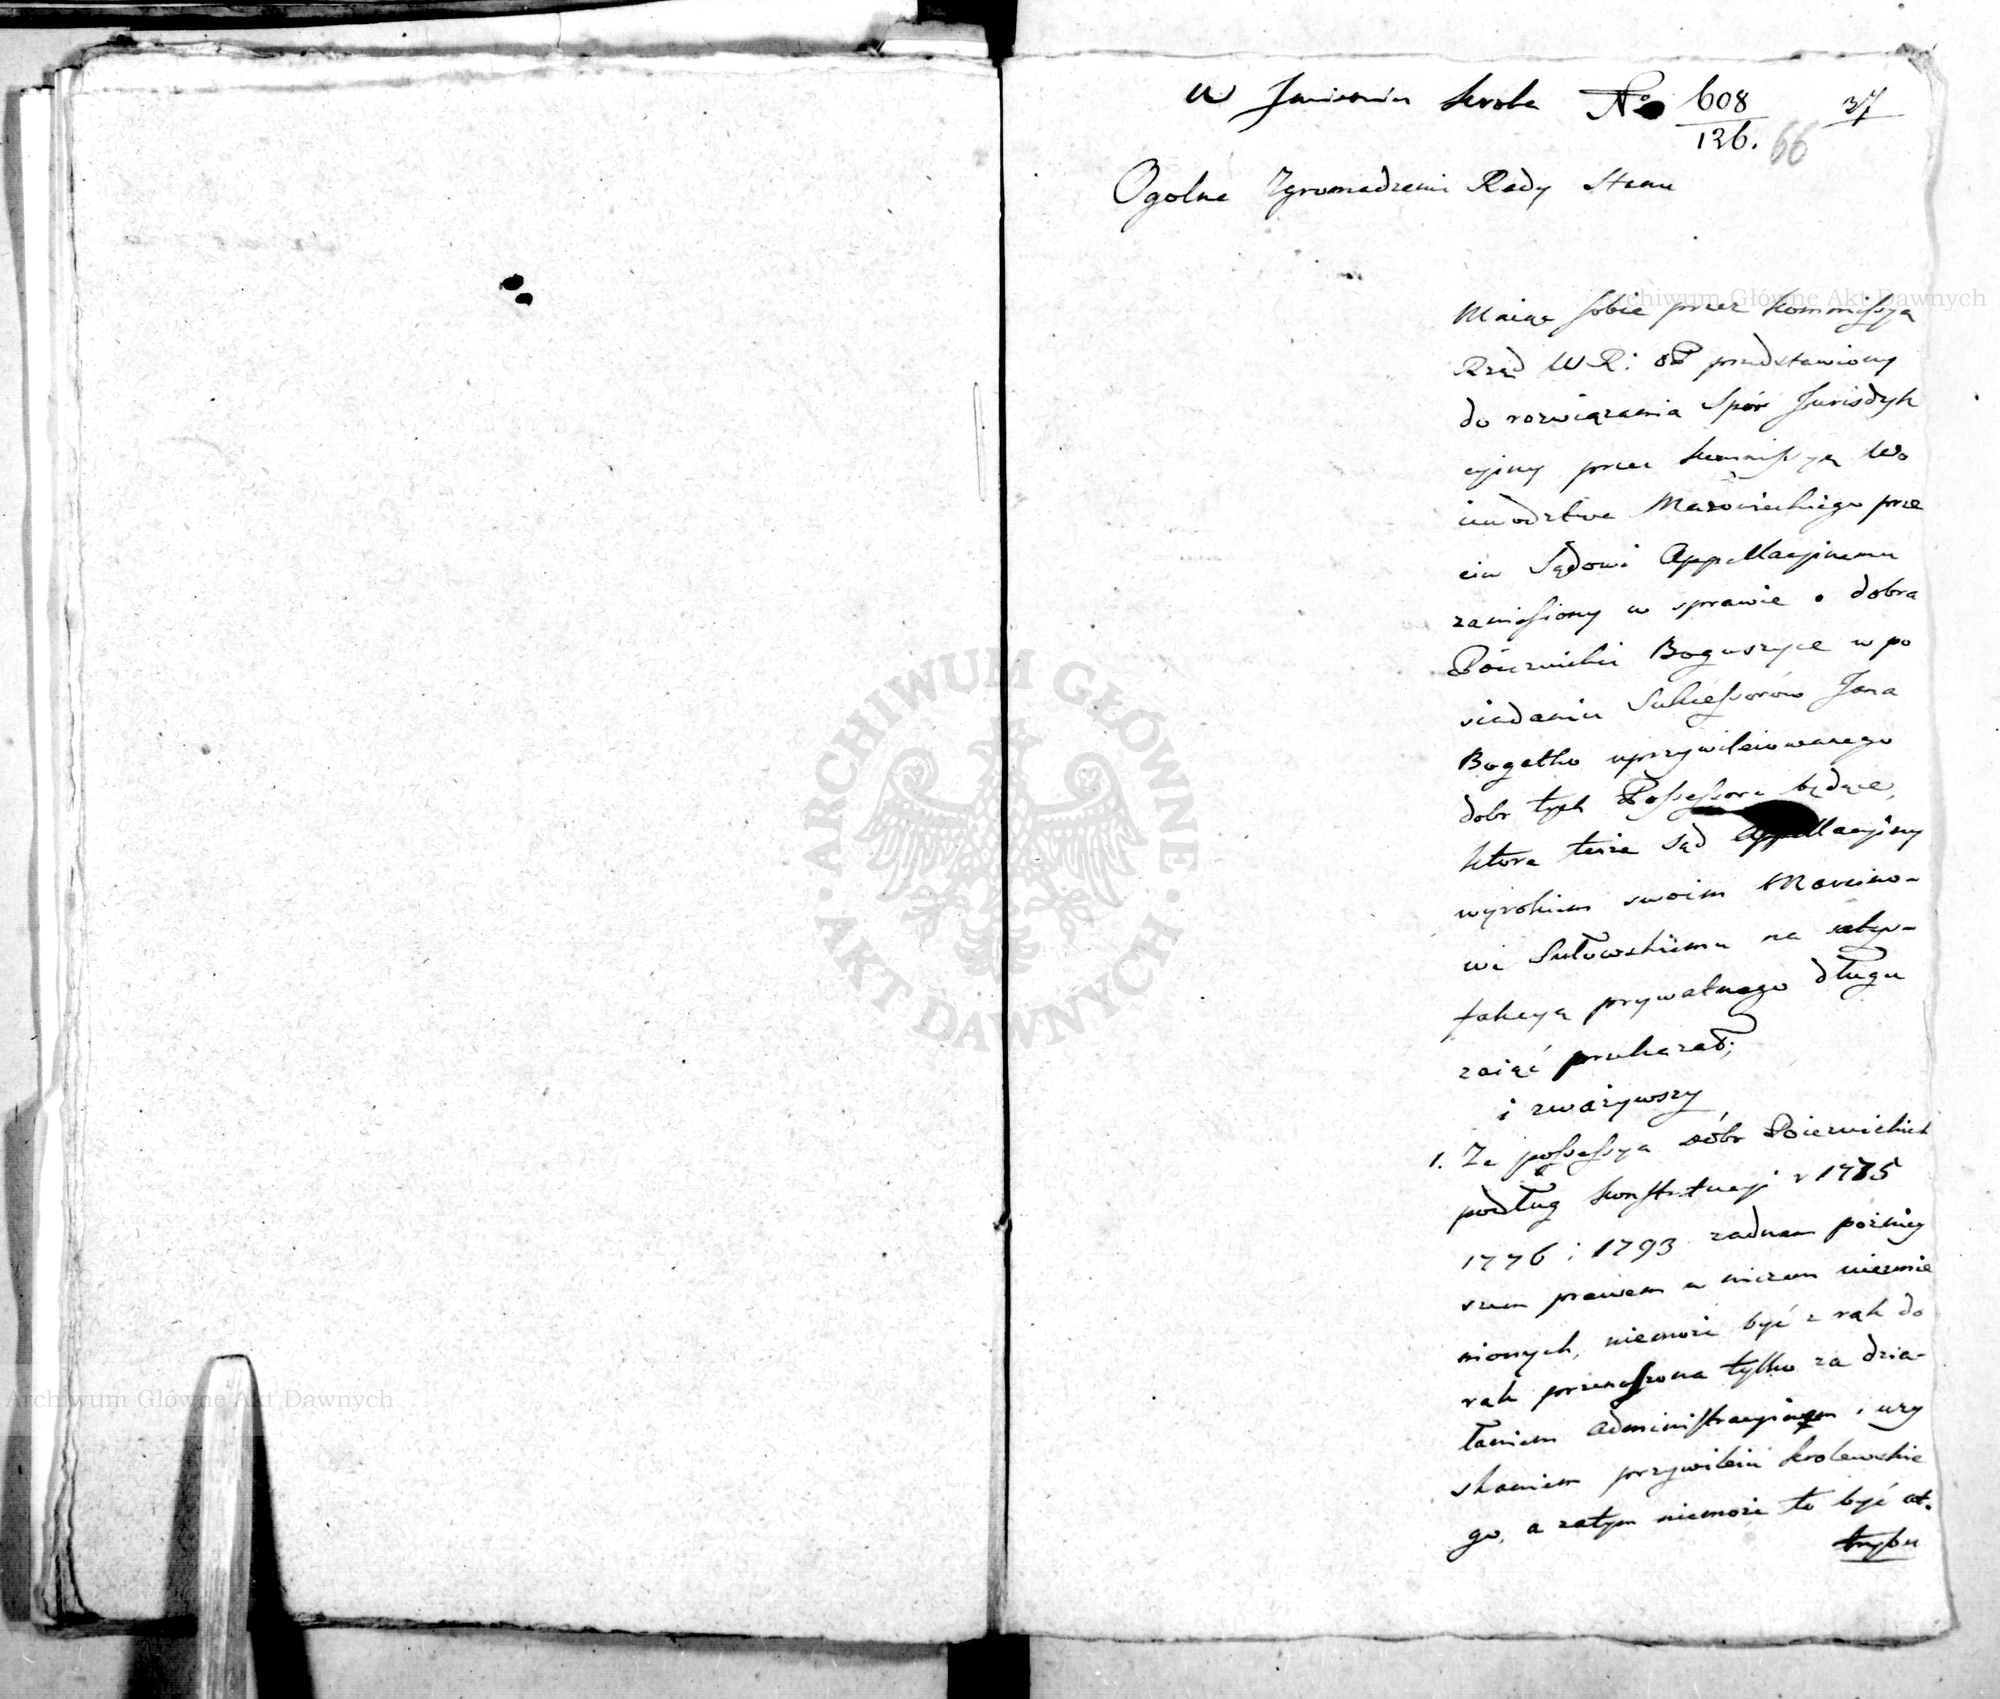 W Imieniu Krola No 608/126. 37
66
Ogolne Zgromadzenie Rady Stanu
Maiąc sobie przez Kommissyą
Rząd W R: i OP przedstawiony
do rozwiązania Spór Jurisdyk
cyjny przez Kommissyą Wo
iewodztwa Mazowieckiego prze
ciw Sądowi Appellacyjnemu
zaniesiony w sprawie o dobra
Poiezuickie Boguszyce w po
siadaniu Sukcessorów Jana
Bogatko uprzywileiowanego
dobr tych Possessora będące,
ktore tenże Sąd Appellacyjny
wyrokiem swoim Marcino-
wi Sułowskiemu na satys-
fakcyą prywatnego długu
zaiąć przekazał;
i zważywszy
1. Ze possessya dóbr Poiezuickich
podług Konstytucyi r 1775
1776 i 1793 zadnem pożniey
szem prawem w niczem niezmie
nionych, niemoże być z rąk do
rąk przenoszona tylko za dzia-
łaniem administracyinem i uzy
skaniem przywileiu krolewskie
go, a zatym niemoże to być at-
trybu
Archiwum Główne Akt Dawnych
Archiwum Główne Akt Dawnych
ARCHIWUM GŁÓWNE · AKT DAWNYCH ·